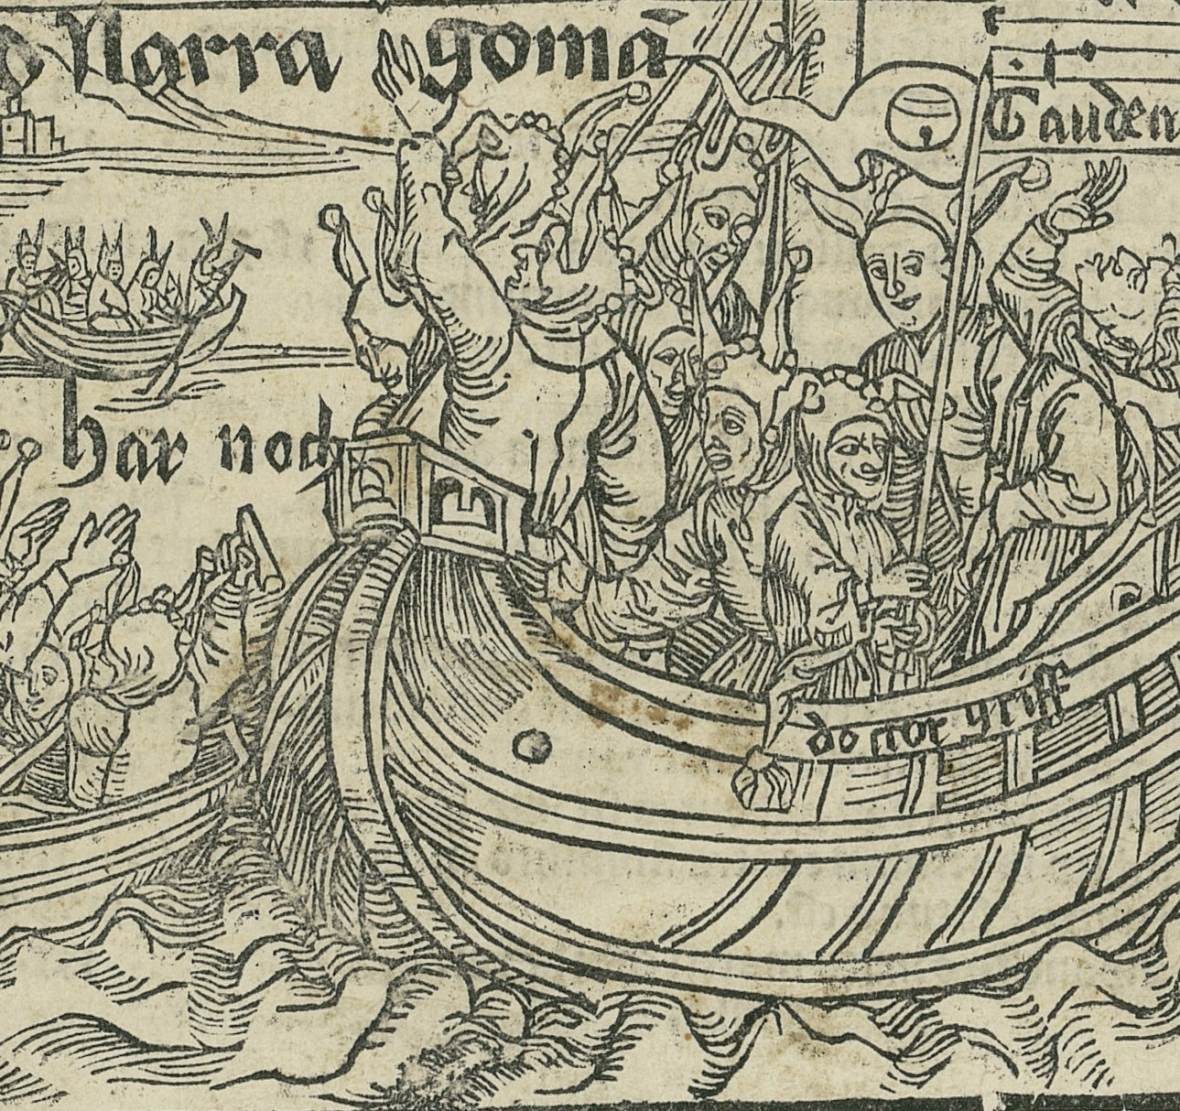 Narra gomā
Gaudeam
har noch
doctor griff